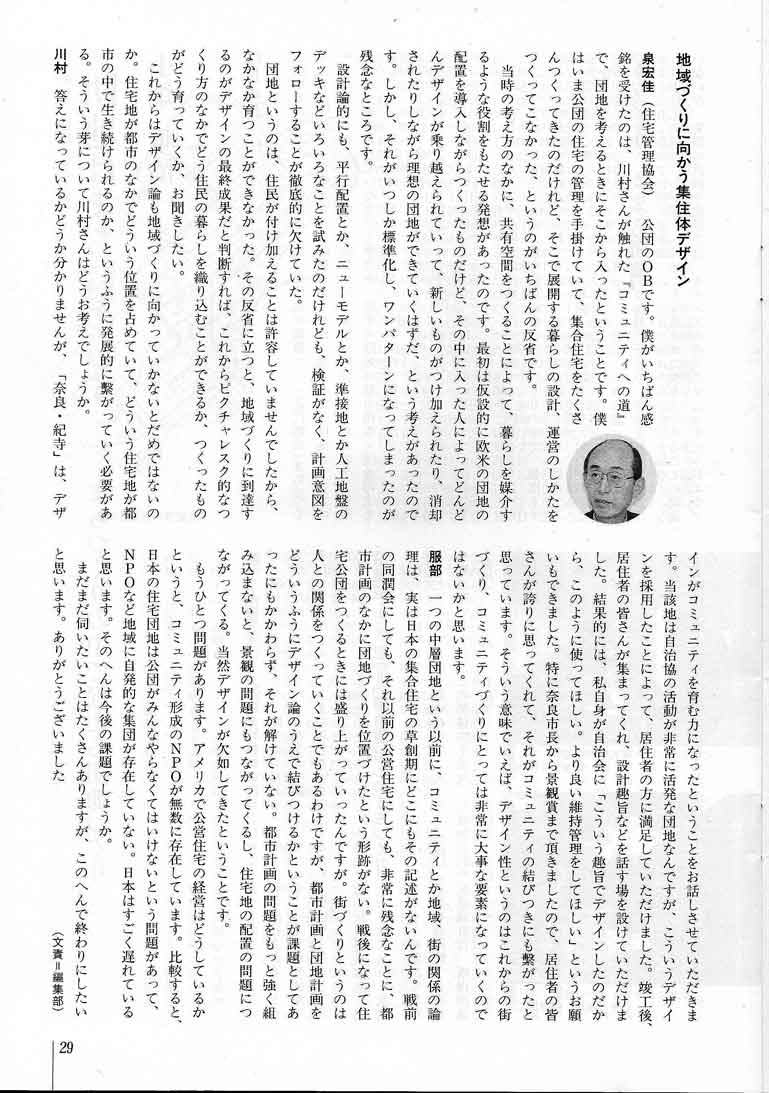 地域づくりに向かう集住体デザイン
泉宏佳(住宅管理協会) 公団のOBです。僕がいちばん感
銘を受けたのは、川村さんが触れた『コミュニティへの道』
で、団地を考えるときにそこから入ったということです。僕
はいま公団の住宅の管理を手掛けていて、集合住宅をたくさ
んつくってきたのだけれど、そこで展開する暮らしの設計、運営のしかたを
つくってこなかった、というのがいちばんの反省です。
当時の考え方のなかに、共有空間をつくることによって、暮らしを媒介す
るような役割をもたせる発想があったのです。最初は仮設的に欧米の団地の
配置を導入しながらつくったものだけど、その中に入った人によってどんど
んデザインが乗り越えられていって、新しいものがつけ加えられたり、消却
されたりしながら理想の団地ができていくはずだ、という考えがあったので
す。しかし、それがいつしか標準化し、ワンパターンになってしまったのが
残念なところです。
設計論的にも、平行配置とか、ニューモデルとか、準接地とか人工地盤の
デッキなどいろいろなことを試みたのだけれども、検証がなく、計画意図を
フォローすることが徹底的に欠けていた。
団地というのは、住民が付け加えることは許容していませんでしたから、
なかなか育つことができなかった。その反省に立つと、地域づくりに到達す
るのがデザインの最終成果だと判断すれば、これからピクチャレスク的なつ
くり方のなかでどう住民の暮らしを織り込むことができるか、つくったもの
がどう育っていくか、お聞きしたい。
これからはデザイン論も地域づくりに向かっていかないとだめではないの
か。住宅地が都市のなかでどういう位置を占めていて、どういう住宅地が都
市の中で生き続けられるのか、というふうに発展的に繋がっていく必要があ
る。そういう芽について川村さんはどうお考えでしょうか。
川村 答えになっているかどうか分かりませんが、「奈良・紀寺」は、デザ
インがコミュニティを育む力になったということをお話しさせていただきま
す。当該地は自治協の活動が非常に活発な団地なんですが、こういうデザイ
ンを採用したことによって、居住者の方に満足していただけました。竣工後、
居住者の皆さんが集まってくれ、設計趣旨などを話す場を設けていただけま
した。結果的には、私自身が自治会に「こういう趣旨でデザインしたのだか
ら、このように使ってほしい。より良い維持管理をしてほしい」というお願
いもできました。特に奈良市長から景観賞まで頂きましたので、居住者の皆
さんが誇りに思ってくれて、それがコミュニティの結びつきにも繋がったと
思っています。そういう意味でいえば、デザイン性というのはこれからの街
づくり、コミュニティづくりにとっては非常に大事な要素になっていくので
はないかと思います。
服部 一つの中層団地という以前に、コミュニティとか地域、街の関係の論
理は、実は日本の集合住宅の草創期にどこにもその記述がないんです。戦前
の同潤会にしても、それ以前の公営住宅にしても、非常に残念なことに、都
市計画のなかに団地づくりを位置づけたという形跡がない。戦後になって住
宅公団をつくるときには盛り上がっていったんですが。街づくりというのは
人との関係をつくっていくことでもあるわけですが、都市計画と団地計画を
どういうふうにデザイン論のうえで結びつけるかということが課題としてあ
ったにもかかわらず、それが解けていない。都市計画の問題をもっと強く組
み込まないと、景観の問題にもつながってくるし、住宅地の配置の問題につ
ながってくる。当然デザインが欠如してきたということです。
もうひとつ問題があります。アメリカで公営住宅の経営はどうしているか
というと、コミュニティ形成のNPOが無数に存在しています。比較すると、
日本の住宅団地は公団がみんなやらなくてはいけないという問題があって、
NPOなど地域に自発的な集団が存在していない。日本はすごく遅れている
と思います。そのへんは今後の課題でしょうか。
まだまだ伺いたいことはたくさんありますが、このへんで終わりにしたい
と思います。ありがとうございました
(文責=編集部)
29